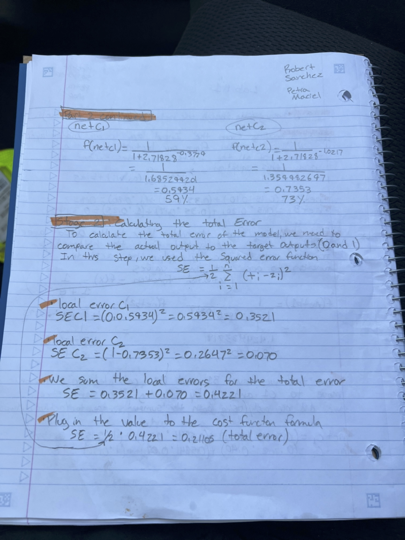 Robert
Sanchez
Petra
Maciel
netC₁
netC₂
f(netc1) = 1 / 1+2.71828^-0.3790
f(netc2) = 1 / 1+2.71828
= 1
= 1
1.359982697
= 0.5934
= 0.7353
59%
73%
Calculating the total Error
To calculate the total error of the model, we need to
compare the actual output to the target outputs (0 and 1)
In this step, we used the squared error function
SE = 1/2 n Σ i=1 (t i - z i)²
local error C₁
SEC1 = (0.0.5934)² = 0.5934² = 0.3521
local error C₂
SE C₂ = (1-0.7353)² = 0.2647² = 0.070
We sum the local errors for the total error
SE = 0.3521 + 0.070 = 0.4221
Plug in the value to the cost function formula
SE = 1/2 · 0.4221 = 0.21105 (total error)